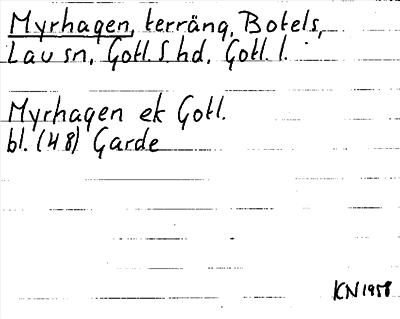 Myrhagen, terräng, Botels,
Lau sn, Gotl. S hd, Gotl. l.
Myrhagen ek Gotl.
bl. (48) Garde
KN 1958